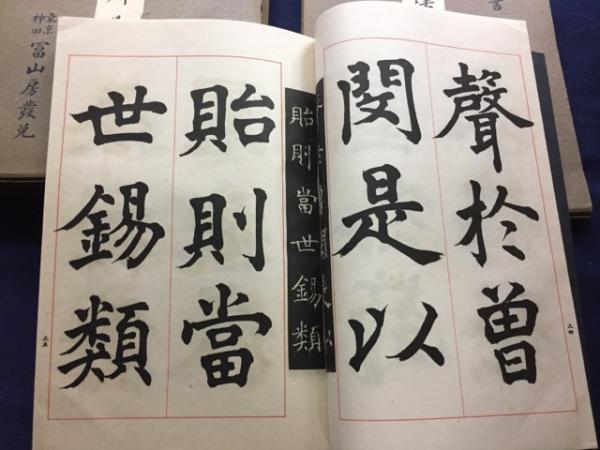 聲於曽
閔是以
貽則當
世錫類
貽則當世錫類
三四
三五
東京
神田
冨山房發兌
書